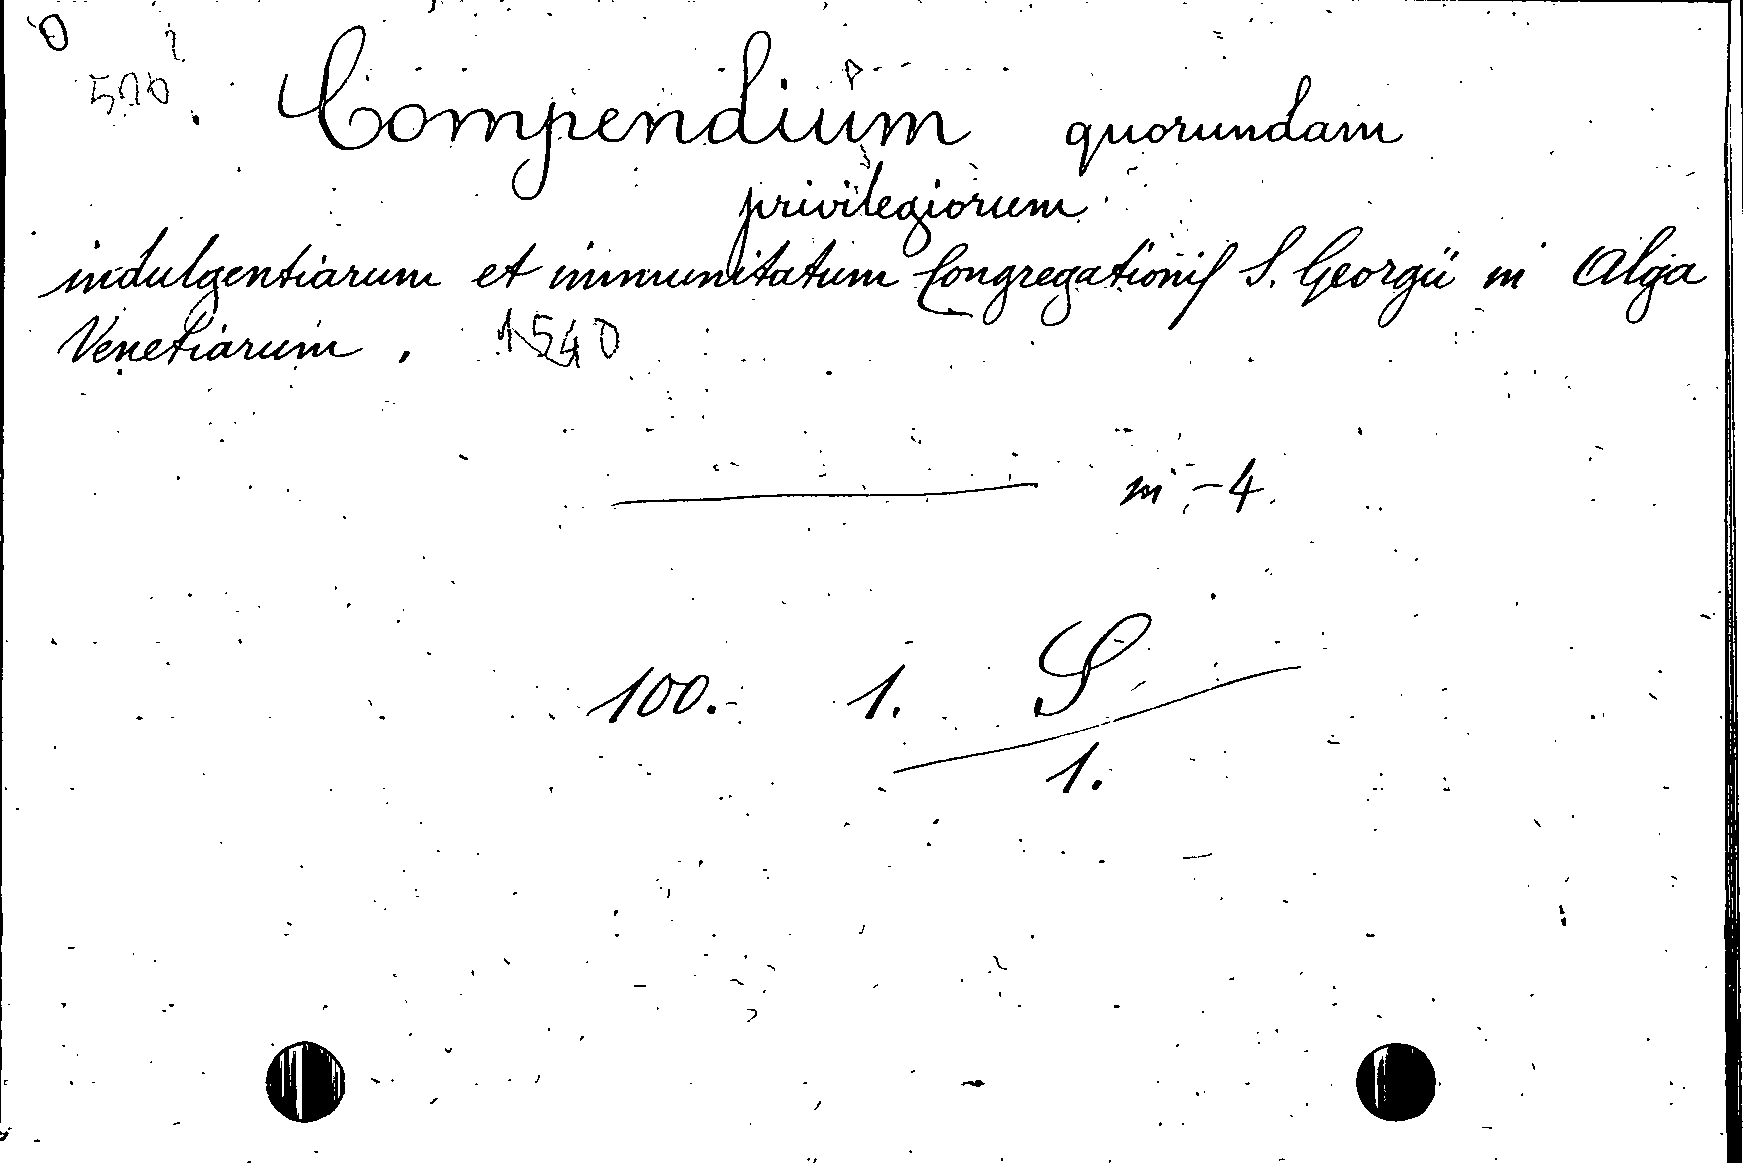 Compendium quorundam
privilegiorum
indulgentiarum et immunitatum Congregationis S. Georgii in Alga
Venetiarum. 1540
in-4.
100. 1. S
1.